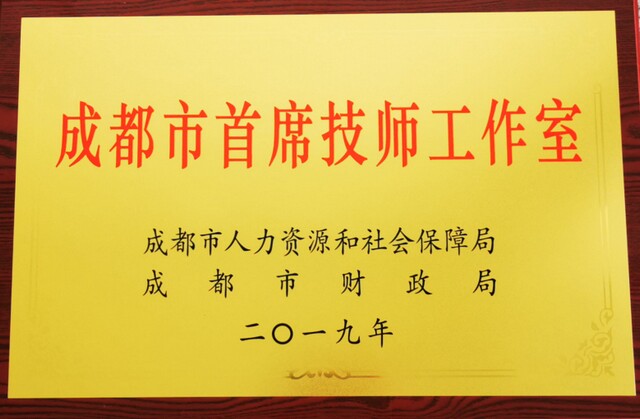 成都市首席技师工作室
成都市人力资源和社会保障局
成都市财政局
二〇一九年